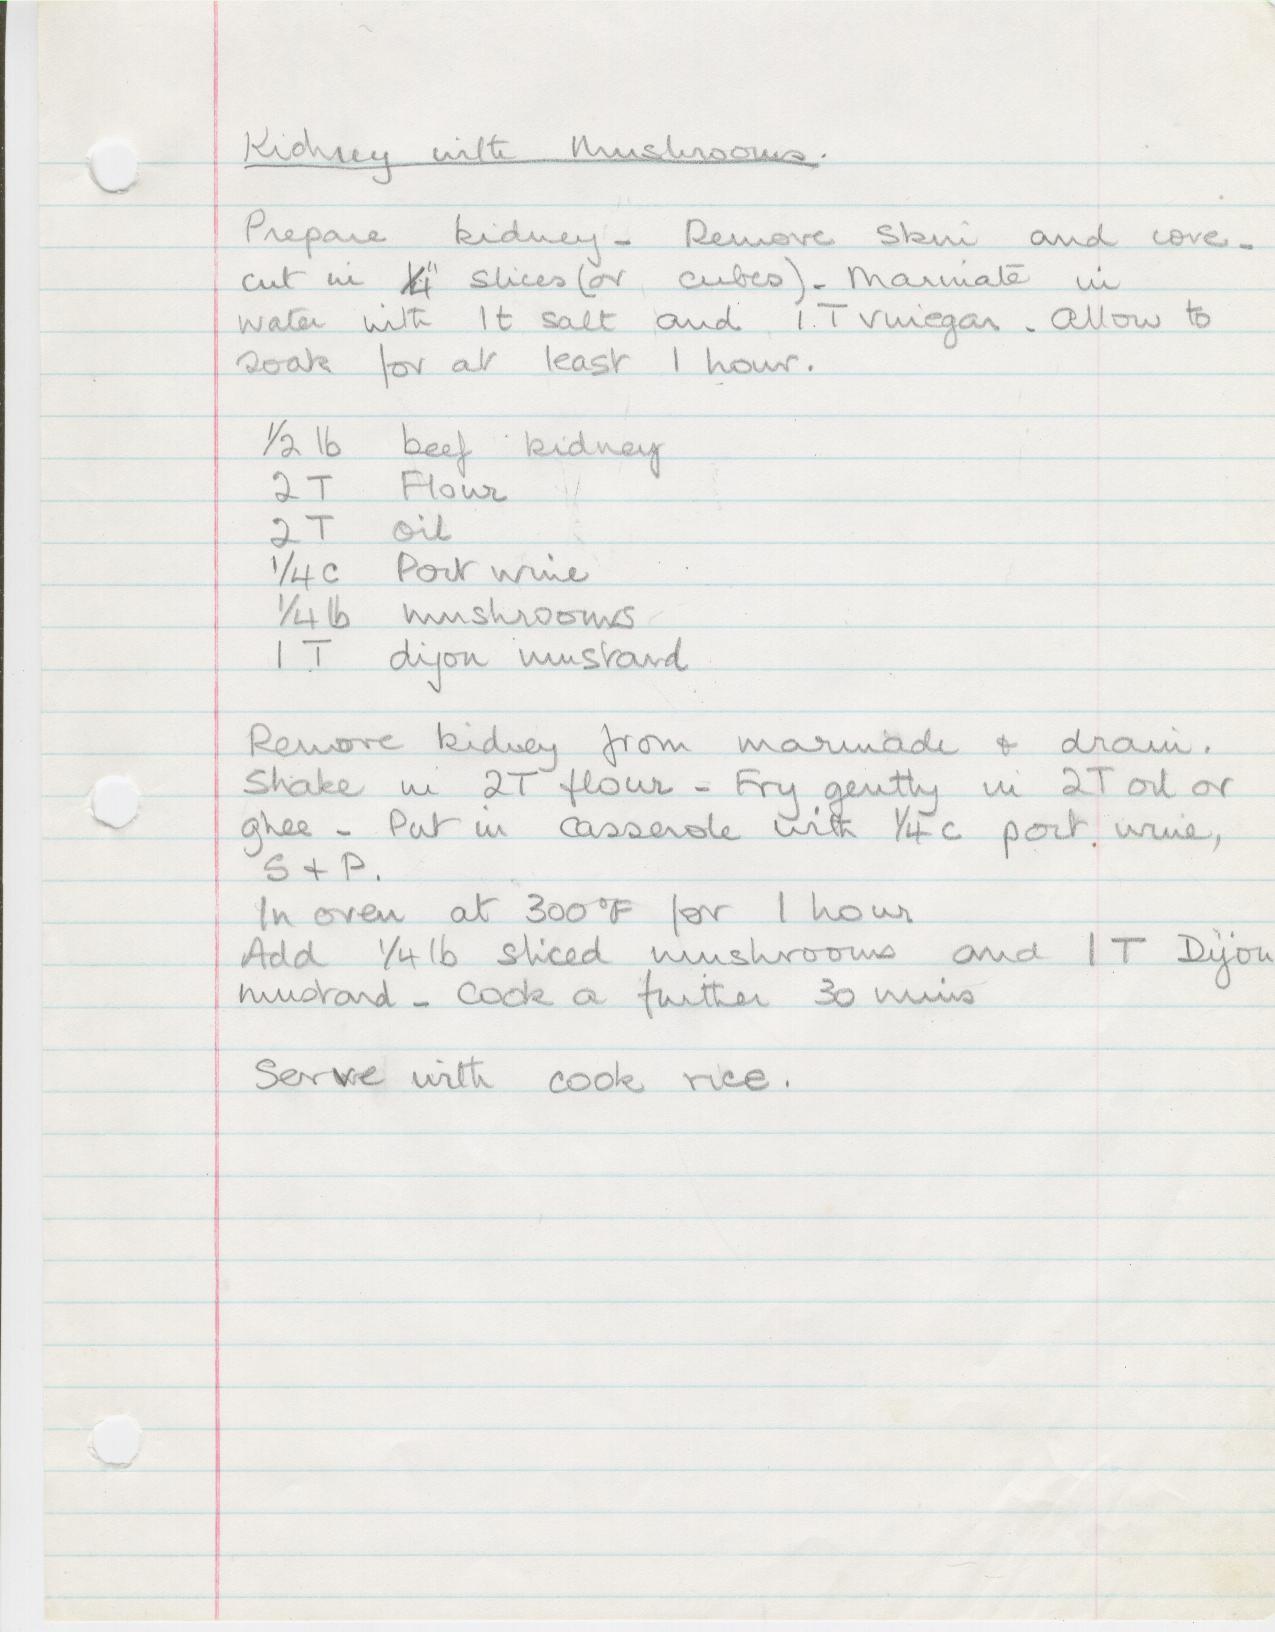 Kidney with Mushrooms.
Prepare kidney - Remove skin and core -
cut in 1/4" slices (or cubes) - Marinate in
water with 1t salt and 1 T vinegar. Allow to
soak for at least 1 hour.
1/2 lb beef kidney
2 T Flour
2 T oil
1/4 c Port wine
1/4 lb mushrooms
1 T dijon mustard
Remove kidney from marinade & drain.
Shake in 2T flour - Fry gently in 2T oil or
ghee - Put in casserole with 1/4 c port wine,
S + P.
In oven at 300°F for 1 hour
Add 1/4 lb sliced mushrooms and 1 T Dijon
mustard - Cook a further 30 mins
Serve with cook rice.